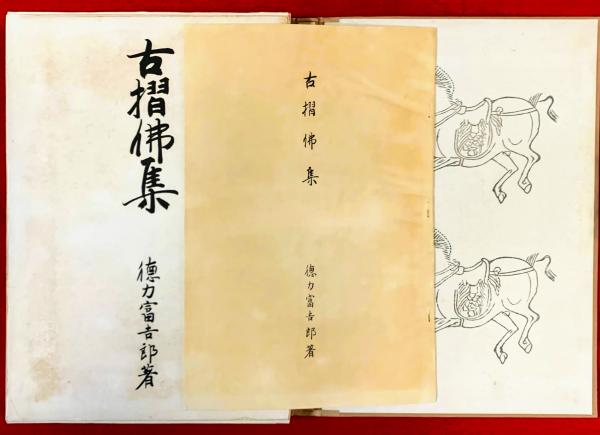 古摺佛集
德力富吉郎著
古摺佛集
德力富吉郎著